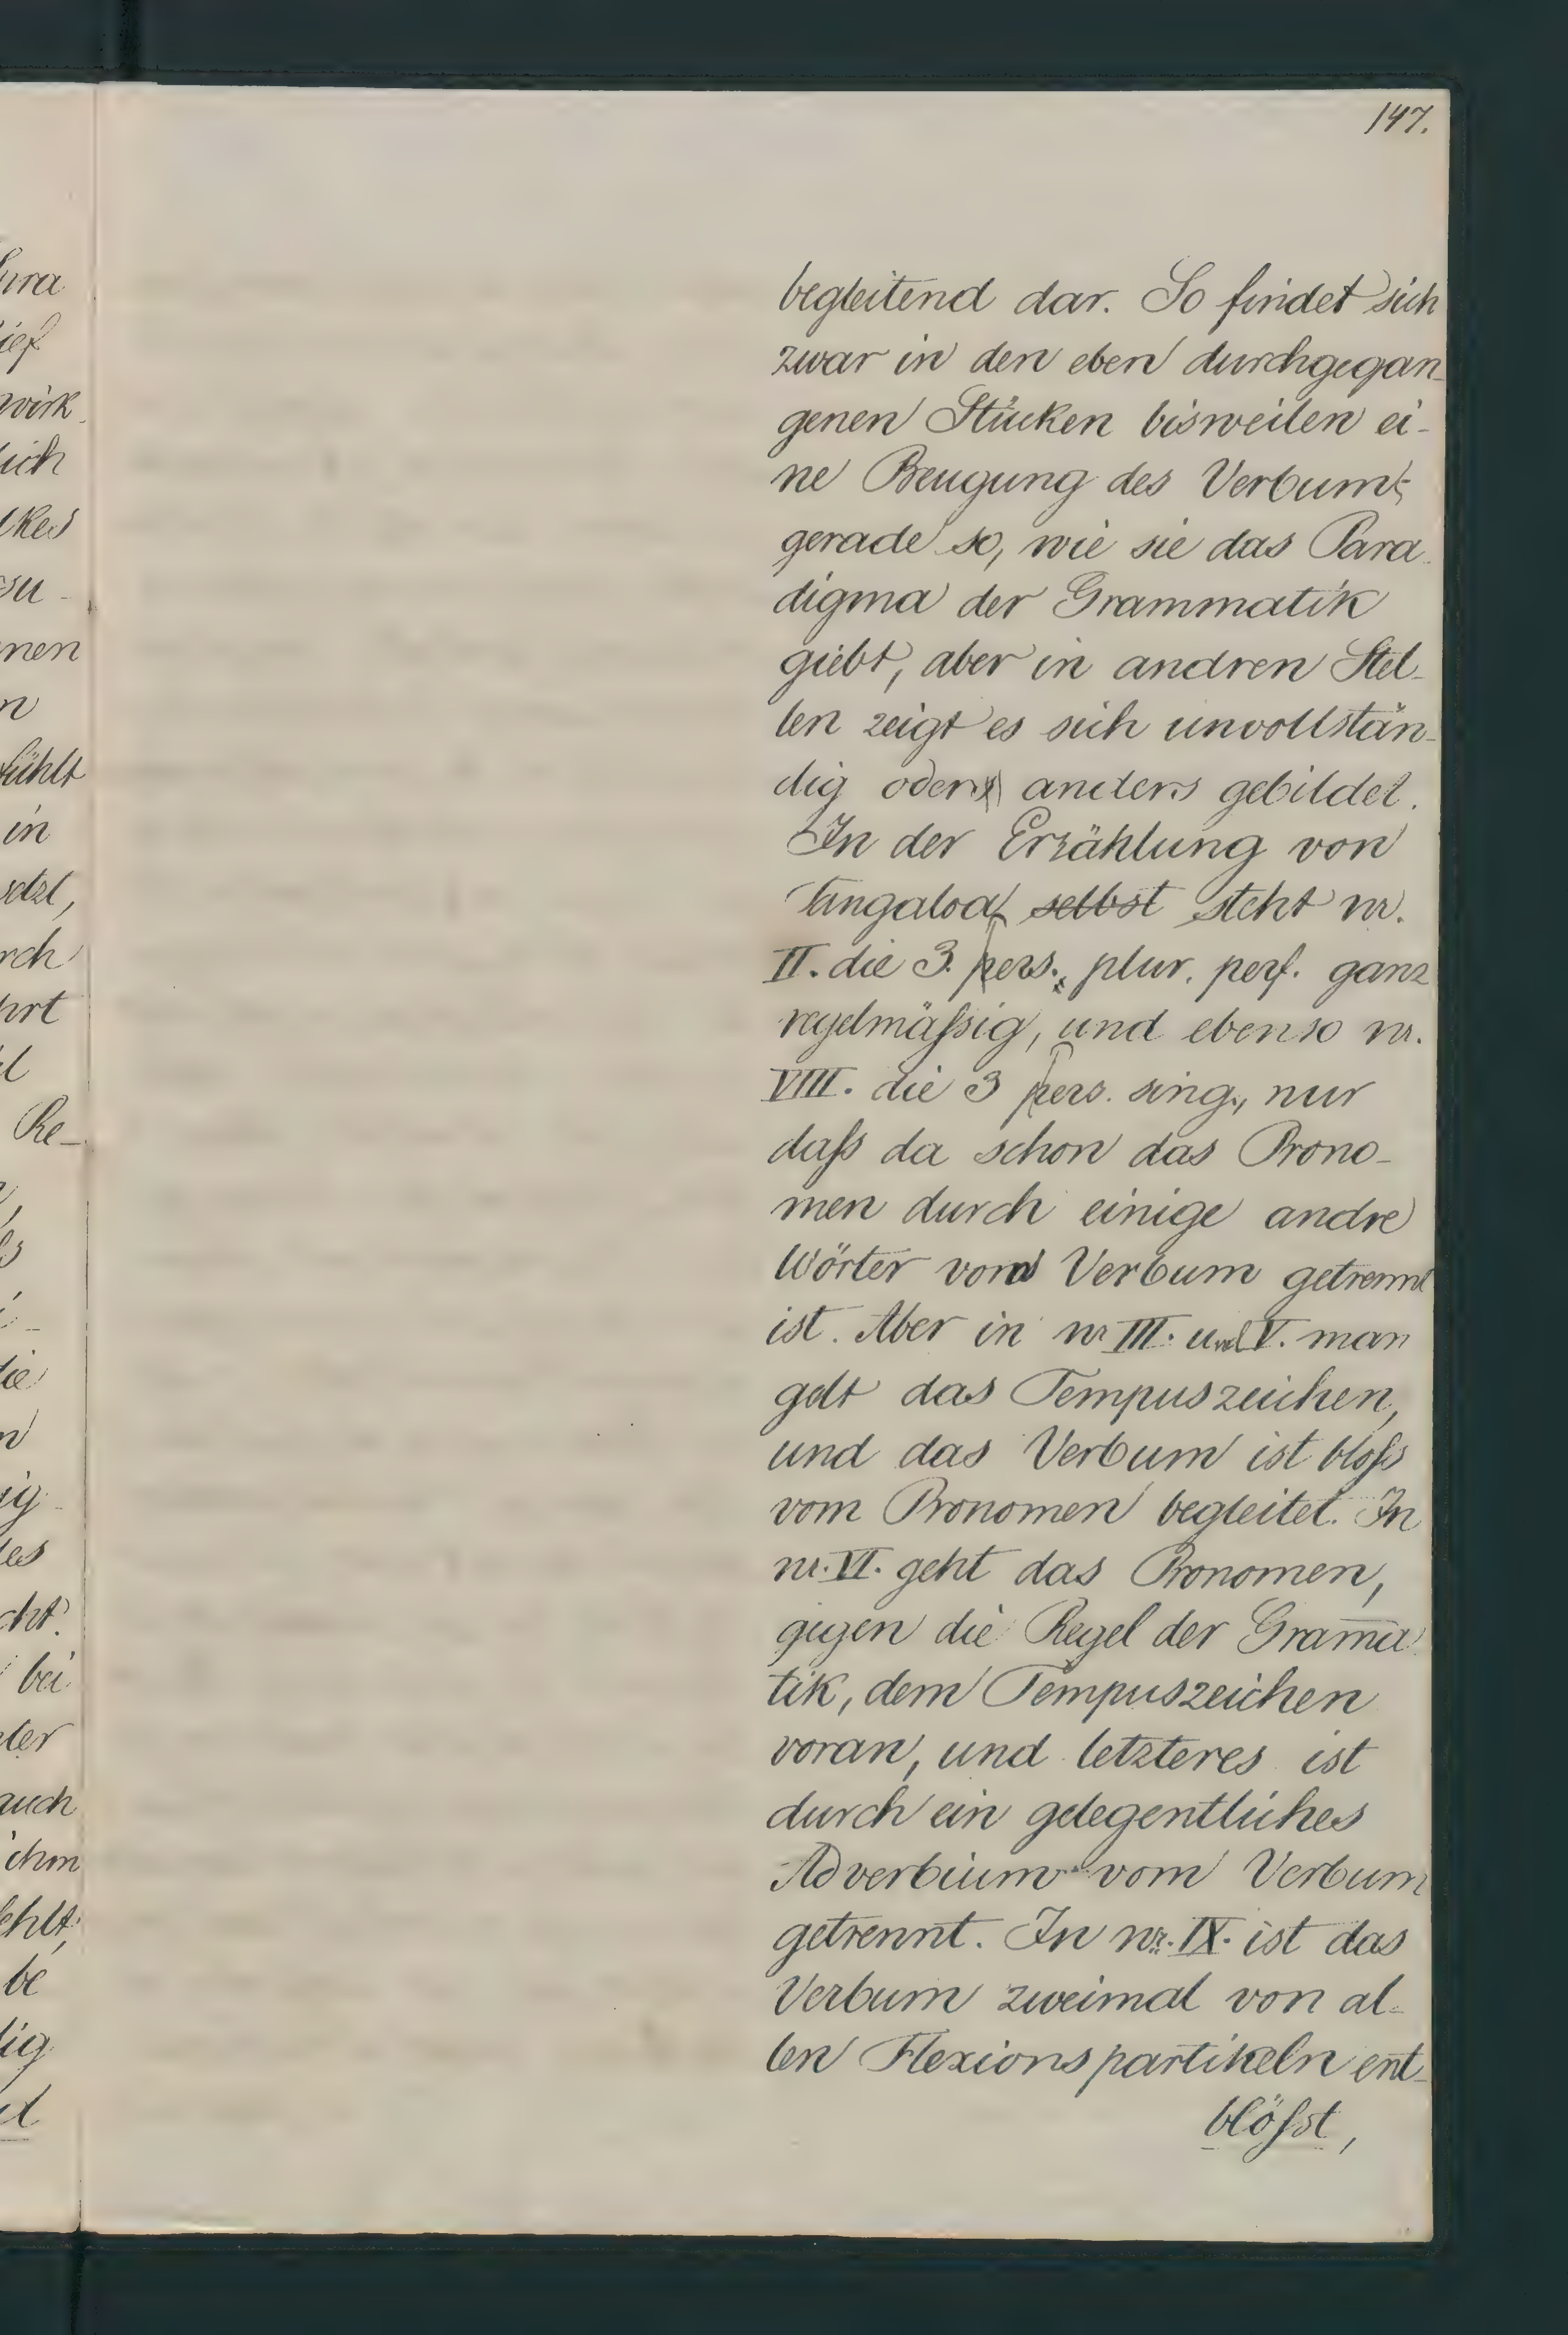 147.
begleitend dar. So findet sich
zwar in den eben durchgegan-
genen Stücken bisweilen ei-
ne Beugung des Verbums,
gerade so, wie sie das Para-
digma der Grammatik
giebt, aber in andren Stel-
len zeigt es sich unvollstän-
dig oder anders gebildet.
In der Erzählung von
Tangaloa selbst steht nr.
II. die 3. pers. plur. perf. ganz
regelmäßig, und ebenso nr.
VIII. die 3 pers. sing., nur
daß da schon das Prono-
men durch einige andre
Wörter vom Verbum getrennt
ist. Aber in nr III. und V. man
gelt das Tempuszeichen,
und das Verbum ist bloß
vom Pronomen begleitet. In
nr. VI. geht das Pronomen,
gegen die Regel der Gram̅a
tik, dem Tempuszeichen
voran, und letzteres ist
durch ein gelegentliches
Adverbium vom Verbum
getrennt. In nr. IX. ist das
Verbum zweimal von al-
len Flexionspartikeln ent-
blößt,